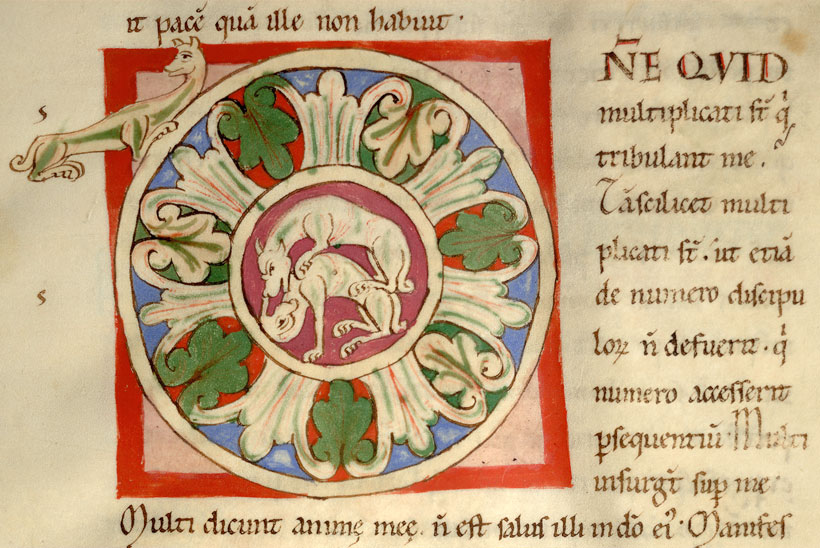 it pacē quā ille non habuit ·
s
s
ÑE QVID
multiplicati sꝉ q
tribulant me ·
Tā scilicet multi
plicati sꝉ · ut etiā
de numero discipu
loꝝ ñ defuerit · q
numero accesserit
ꝑsequentiū Multi
insurgꝉ suꝑ me ·
Multi dicunt animę meę · ñ est salus illi in dō ei᾽ · Manifes